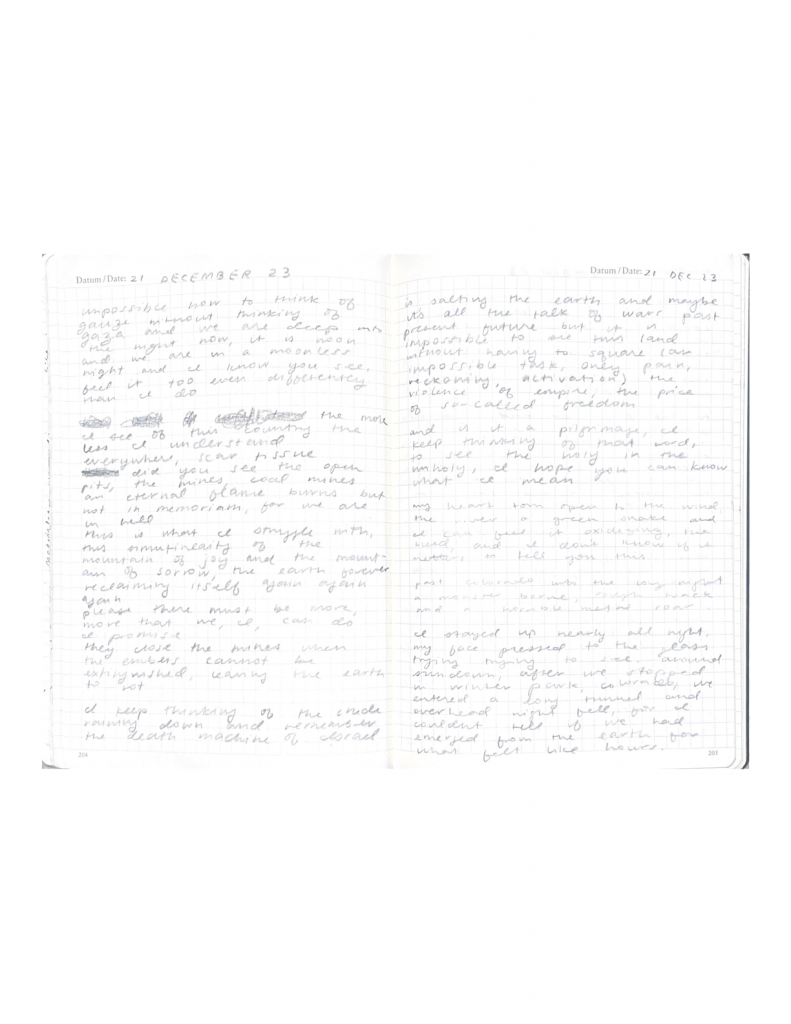 Datum / Date: 21 DECEMBER 23
impossible now to think of
gauze without thinking of
gaza and we are deep into
the night now, it is noon
and we are in a moonless
night and i know you see,
feel it too even differently
than i do
the more
i see of this country the
less i understand
everywhere, scar tissue
did you see the open
pits, the mines coal mines
an eternal flame burns but
not in memoriam, for we are
in hell
this is what i struggle with,
this simultineity of the
mountain of joy and the mount-
ain of sorrow, the earth forever
reclaiming itself again again
again
please there must be more,
more that we, i, can do
i promise
they close the mines when
the embers cannot be
extinguished, leaving the earth
to rot
i keep thinking of the
raining down and remember
the death machine of israel
204
Datum / Date: 21 DEC 23
is salting the earth and maybe
it's all the talk of wars past
present future but it is
impossible to see this land
without having to square (an
impossible task, only pain,
reckoning, activation) the
violence of empire, the price
of so-called freedom
and is it a pilgrimage, i
keep thinking of that word,
to see the holy in the
unholy, i hope you can know
what i mean
my heart torn open to the wind,
the river a green snake and
i can feel it oxidizing, the
and i don't know if it
matters to tell you this
past colorado into the
a monster
and a horrible metal roar
i stayed up nearly all night,
my face pressed to the glass
trying trying to see. around
sundown, after we stopped
in winter park, colorado, we
entered a long tunnel and
overhead night fell, for i
couldn't tell if we had
emerged from the earth for
what felt like hours.
205